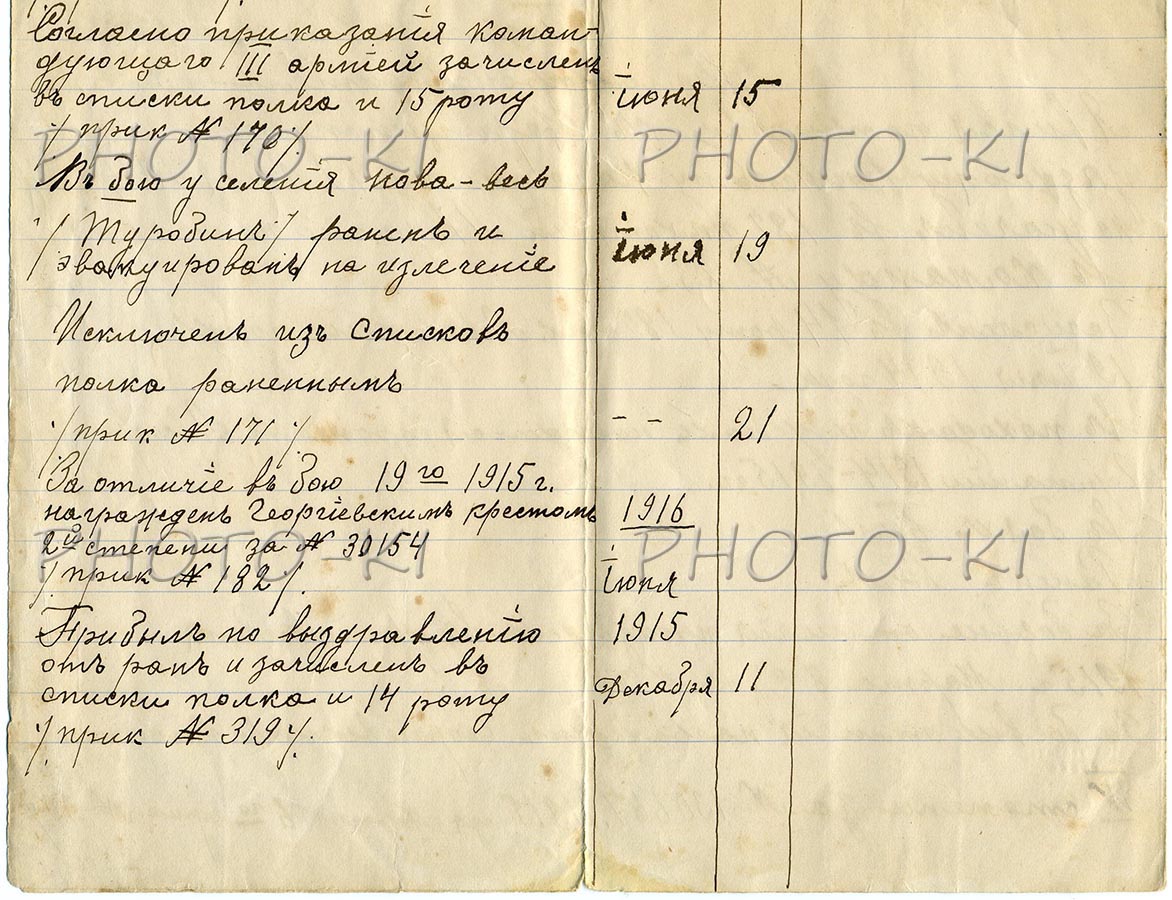 Согласно приказанія коман-
дующаго III арміей зачисленъ
въ списки полка и 15 роту
Іюня 15
/прик № 170/.
Въ бою у селенія Нова-весь
/Туробинъ/ раненъ и
Іюня 19
эвакуированъ на излеченіе
Исключенъ изъ списковъ
полка раненнымъ
/прик № 171/
- - 21
За отличіе въ бою 19го 1915 г.
награжденъ Георгіевскимъ крестомъ
1916
2ой степени за № 30154
/прик № 182/.
Іюня
Прибылъ по выздравленію
1915
отъ ранъ и зачисленъ въ
Декабря 11
списки полка и 14 роту
/прик № 319/.
PHOTO-KI PHOTO-KI
PHOTO-KI PHOTO-KI